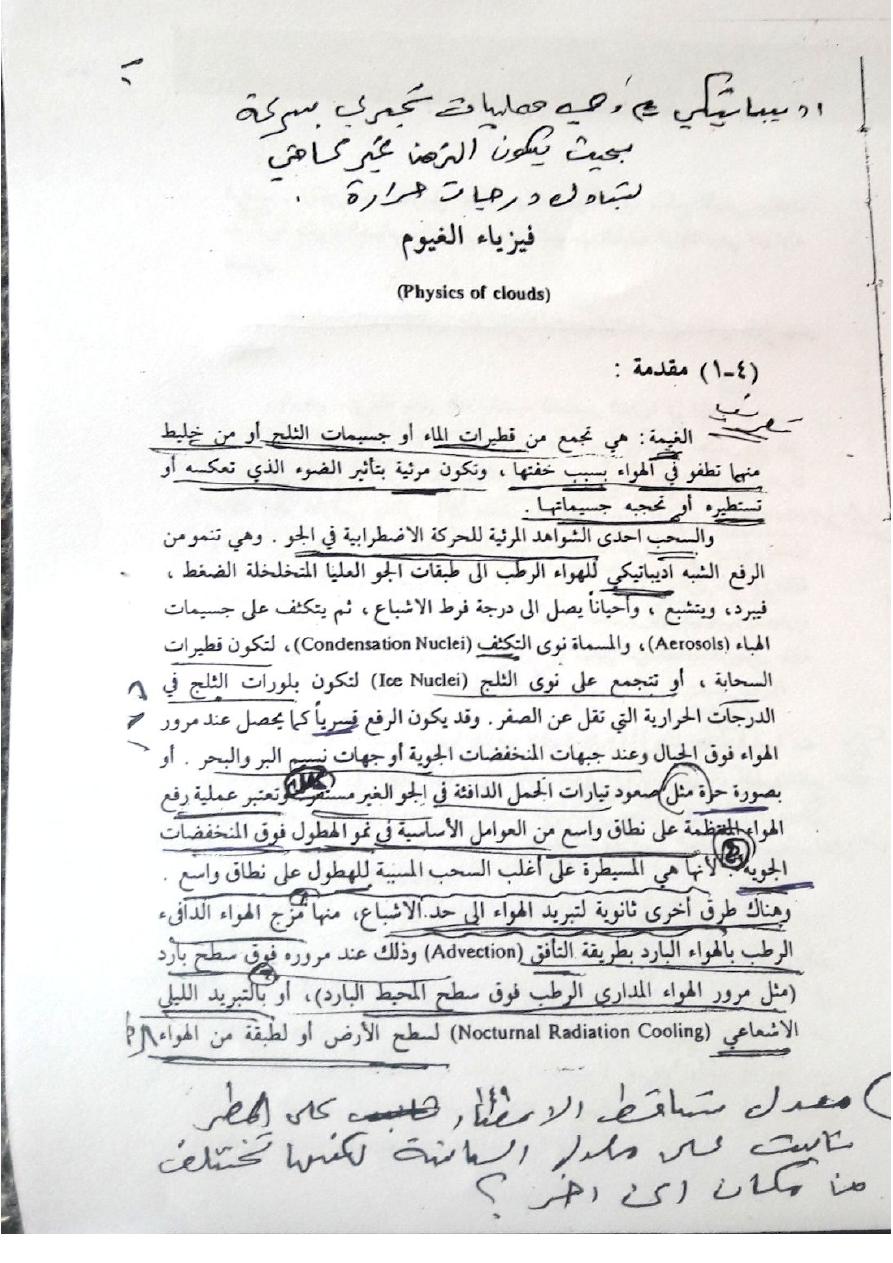 اديباتيكي وهي عمليات تجري بسرعة
بحيث يكون الزمن غير كافي
لتبادل درجات حرارة .
فيزياء الغيوم
(Physics of clouds)
(٤-١) مقدمة :
تعريف
الغيمة: هي تجمع من قطيرات الماء أو جسيمات الثلج أو من خليط
منهما تطفو في الهواء بسبب خفتها ، وتكون مرئية بتأثير الضوء الذي تعكسه أو
تستطيره أو تحجبه جسيماتها .
والسحب احدى الشواهد المرئية للحركة الاضطرابية في الجو . وهي تنمو من
الرفع الشبه اديباتيكي للهواء الرطب الى طبقات الجو العليا المتخلخلة الضغط ،
فيبرد، ويتشبع ، وأحياناً يصل الى درجة فرط الاشباع ، ثم يتكثف على جسيمات
الهباء (Aerosols)، والمسماة نوى التكثف (Condensation Nuclei)، لتكون قطيرات
السحابة ، أو تتجمع على نوى الثلج (Ice Nuclei) لتكون بلورات الثلج في
الدرجات الحرارية التي تقل عن الصفر . وقد يكون الرفع قسرياً كما يحصل عند مرور
الهواء فوق الجبال وعند جبهات المنخفضات الجوية أو جهات نسيم البر والبحر . أو
بصورة حرة مثل صعود تيارات الحمل الدافئة في الجو الغير مستقر وتعتبر عملية رفع
الهواء المنتظمة على نطاق واسع من العوامل الأساسية في نمو الهطول فوق المنخفضات
الجوية . لأنها هي المسيطرة على أغلب السحب المسببة للهطول على نطاق واسع .
وهناك طرق أخرى ثانوية لتبريد الهواء الى حد الاشباع، منها مزج الهواء الدافىء
الرطب بالهواء البارد بطريقة التأفق (Advection) وذلك عند مروره فوق سطح بارد
(مثل مرور الهواء المداري الرطب فوق سطح المحيط البارد)، أو بالتبريد الليلي
الاشعاعي (Nocturnal Radiation Cooling) لسطح الأرض أو لطبقة من الهواء
معدل تساقط الامطار على
ثابت على مدار السنة لكنها تختلف
من مكان الى اخر ؟